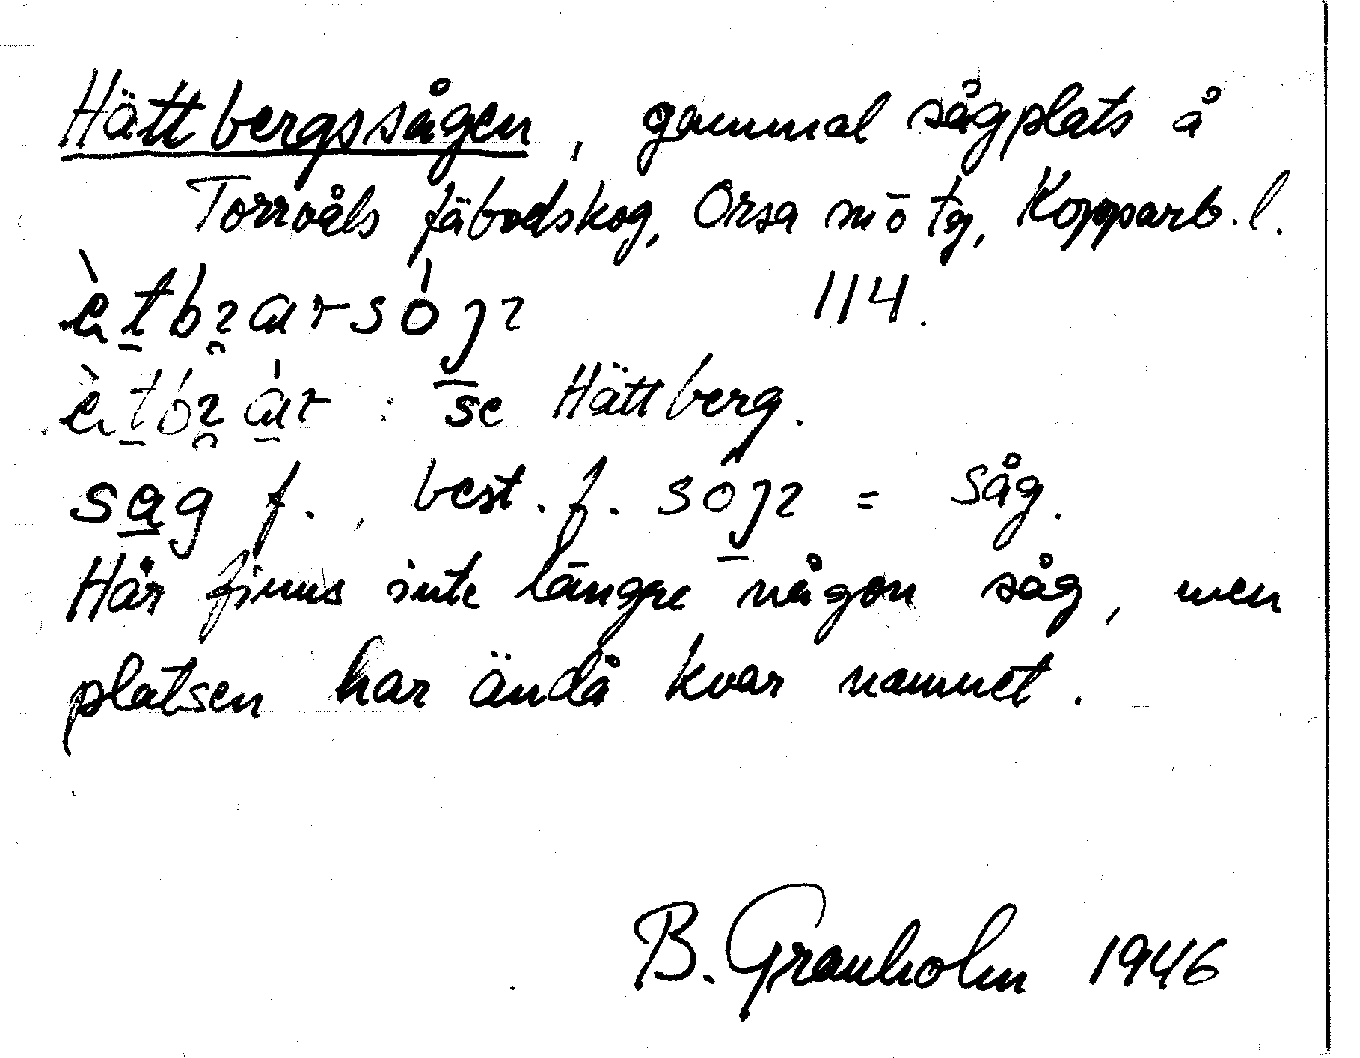 Hättbergssågen, gammal sågplats å
Torrvåls fäbodskog, Orsa sn ö tg, Kopparb. l.
114.
: se Hättberg.
sag f., best. f. = såg.
Här finns inte längre någon såg, men
platsen har ändå kvar namnet.
B. Granholm 1946